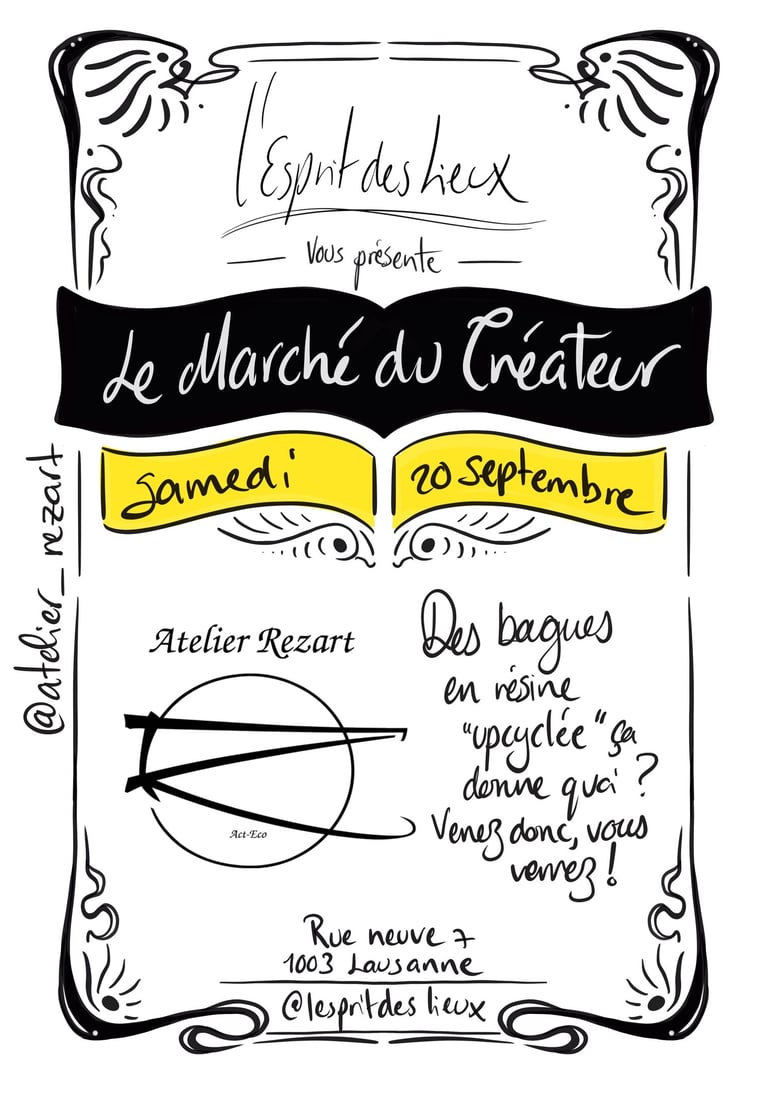 l'Esprit des Lieux
Vous présente
Le Marché du Créateur
Samedi
20 Septembre
@atelier_rezart
Atelier Rezart
Act-Eco
Des bagues
en résine
"upcyclée" ça
donne quoi ?
Venez donc, vous
verrez !
Rue neuve 7
1003 Lausanne
@lespritdes lieux